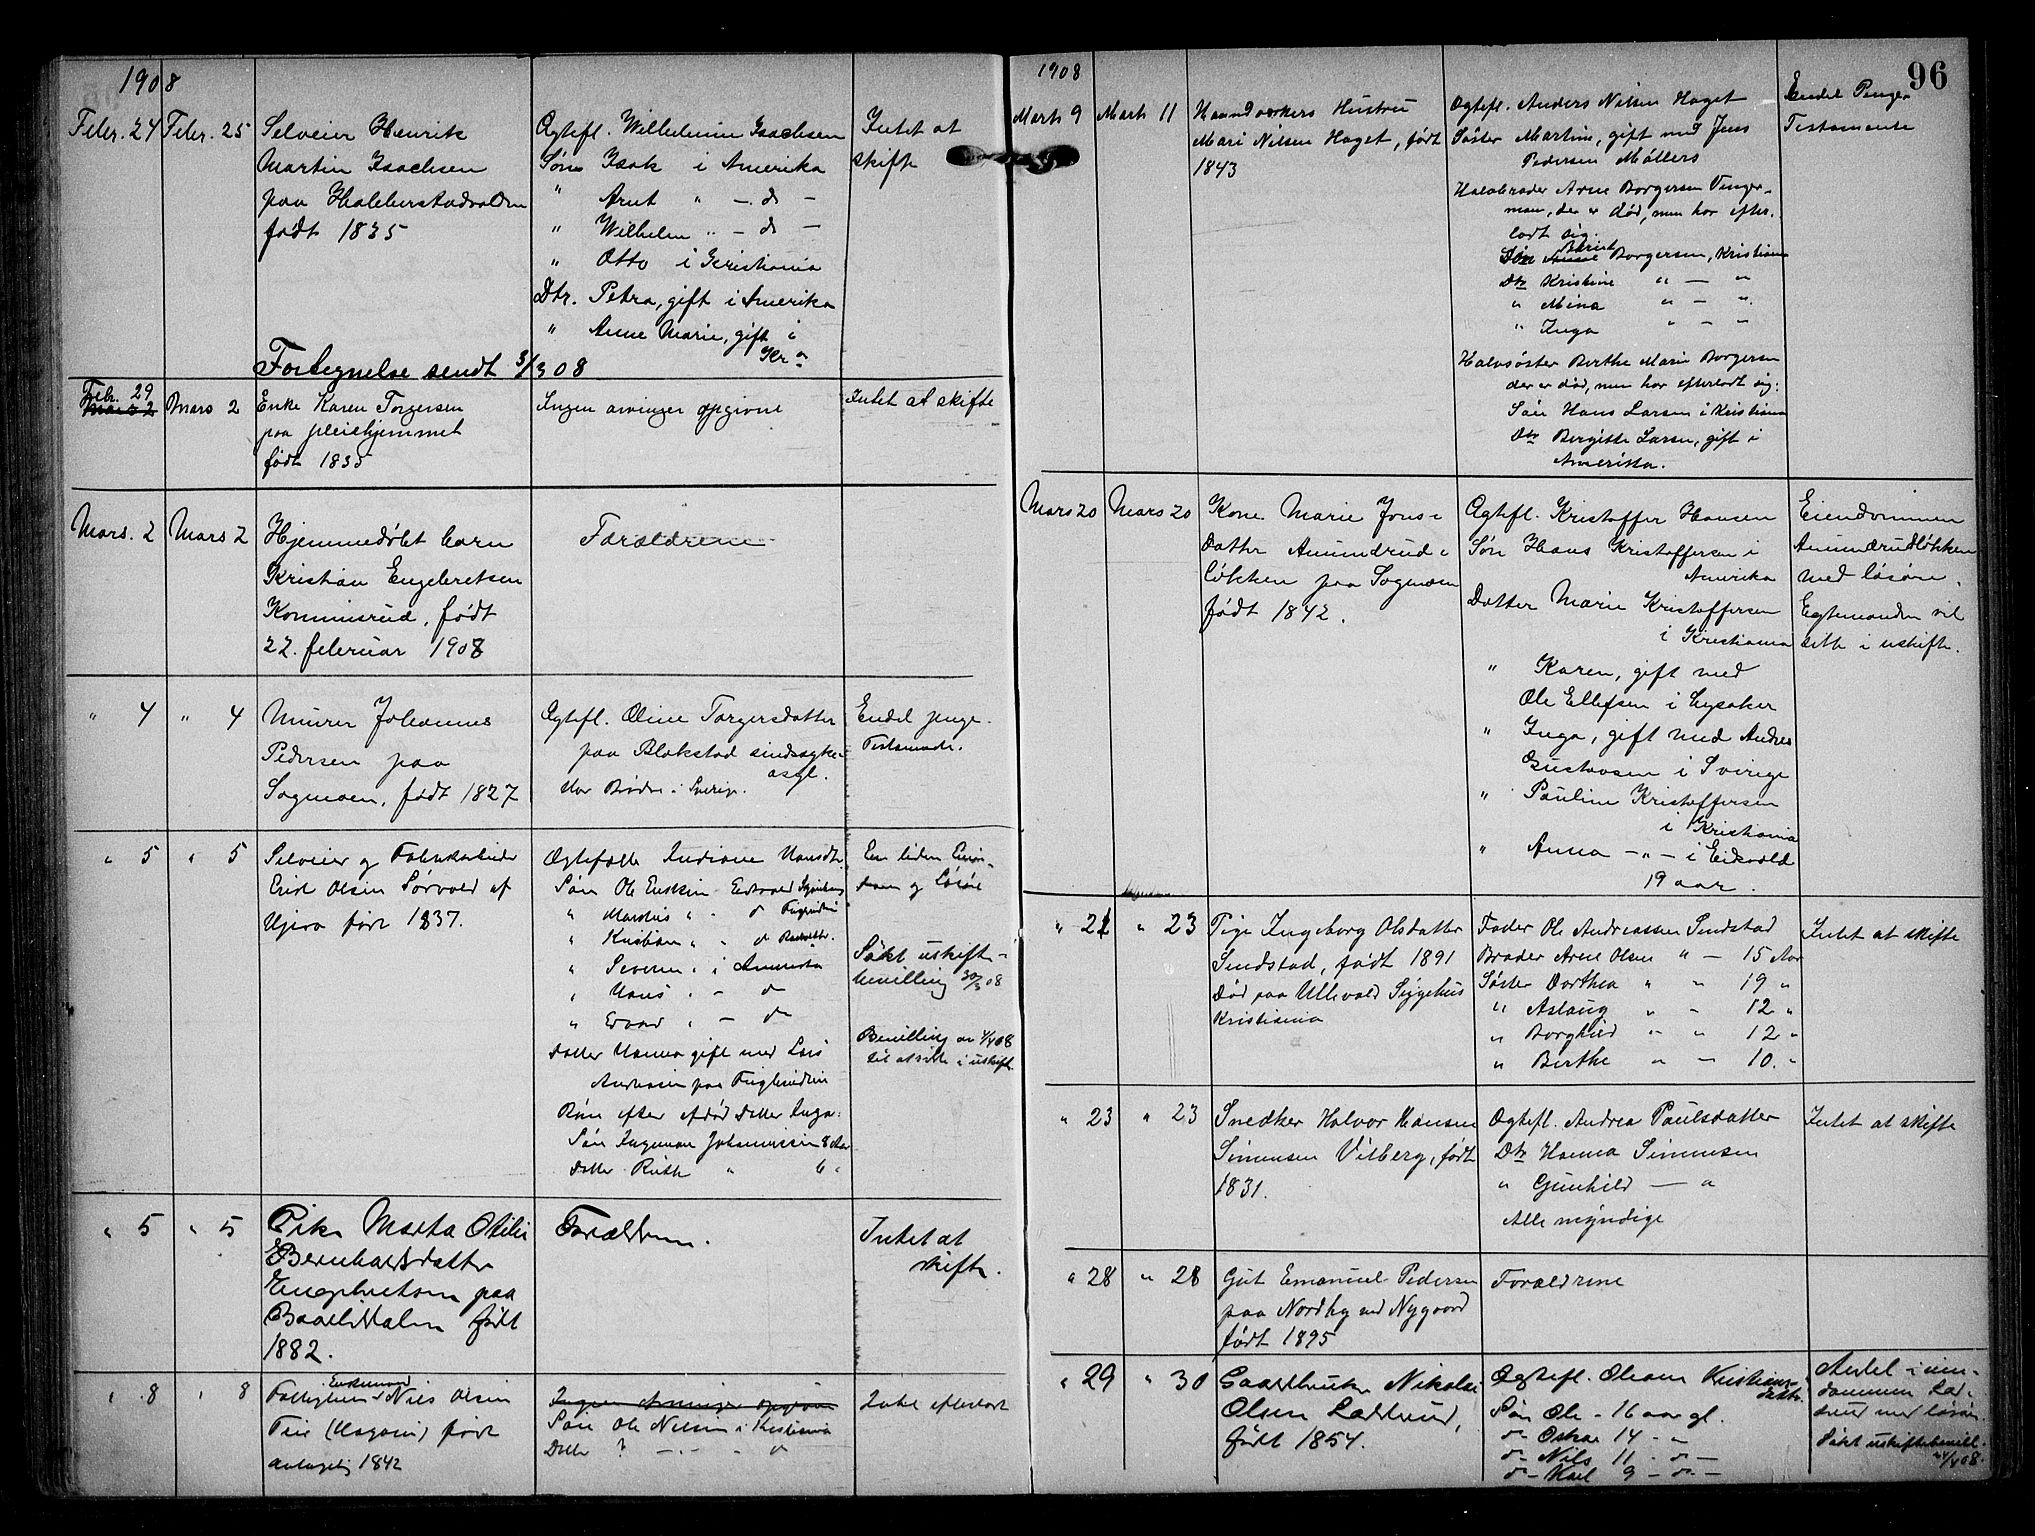 1908
Febr. 24 Febr. 25
Selveier Henrik
Martin Isachsen
paa
født 1835
Fortegnelse sendt 3/3 08
Ægtefl. Wilhelmine Isachsen
Søn Isak i Amerika
" Arnt " - do -
" Wilhelm " - do -
" Otto i Kristiania
Dtr. Petra, gift i Amerika
" Anne Marie, gift i
Kr.a
Intet at
skifte
Febr. 29
Mars 2
Mars 2
Enke Karen Torgersen
paa pleiehjemmet
født 1835
Ingen arvinger opgivne
Intet at skifte
Mars. 2 Mars 2
Hjemmedøbt barn
Kristian Engebretsen
Kommisrud, født
22. februar 1908
Forældrene
" 4 " 4
Murer Johannes
Pedersen paa
Sogmoen, født 1827
Ægtefl. Oline Torgersdatter
paa Blakstad sindssyge-
asyl.
Har Brødre i Sverige.
Endel penge.
Testamente.
" 5 " 5
Selveier og Fabrikarbeider
Erik Olsen Sørvald af
født 1837.
Ægtefælle Indiane Hansdtr
Søn Ole Eriksen Eidsvold
" Marthis " - do
" Kristian " " do
" Severin " i Amerika
" Hans " - do
" Edvard " - do
Datter Hanna gift med Lars
Andreasen paa
Børn efter afdød Datter Inga:
Søn Ingeman Johannessen 8 Aar
Datter Ruth " 6 "
En liden Eien-
dom og Løsøre
Søkt uskifte-
bevilling 30/3 08
Bevilling av 4/4 08
til at sitte i uskifte.
" 5 " 5
Pike Marta Otilie
Bernhardsdatter
Engebretsen paa
født
1882.
Forældrene.
Intet at
skifte.
" 8 " 8
Enkemand
Nils Olsen
Teie født
antagelig 1842
Ingen Arvinger opgivne
Søn Ole Nilsen i Kristiania
Datter ? - " - " do
Intet efterladt
96
1908
Marts 9 Marts 11
Haandværkers Hustru
Mari Nilsen Haget, født
1843
Ægtefl. Anders Nilsen Haget
Søster Martine, gift med Jens
Pedersen Møllers
Halvbroder Arne Borgersen Venger-
moen, der er død, men har efter-
ladt sig:
Søn Borgersen, Kristiania
Dtr Kristine " - "
" Mina " - "
" Inga " - "
Halvsøster Berthe Marie Borgersen
der er død, men har efterladt sig:
Søn Hans Larsen i Kristiania
Dtr Bergitte Larsen, gift i
Amerika.
Endel Penge
Testamente
Mars 20 Mars 20
Kone Marie Jons-
datter Amundrud-
løkken paa Sogmoen
født 1842.
Ægtefl. Kristoffer Hansen
Søn Hans Kristoffersen i
Amerika
Datter Marie Kristoffersen
i Kristiania
" Karen, gift med
Ole Ellefsen i Lysaker
" Inga, gift med Andreas
Gustavsen i Sverige
" Pauline Kristoffersen
i Kristiania
" Anna - " - i Eidsvold
19 aar.
Eiendommen
Amundrudløkken
med løsøre.
Egtemanden vil
sitte i uskifte.
" 21 " 23
Pige Ingeborg Olsdatter
Sendstad, født 1891
død paa Ullevold Sygehus
Kristiania
Fader Ole Andreassen Sendstad
Broder Arne Olsen " - 15 Aar
Søster Dorthea " " 19 "
" Aslaug " - 12 "
" Borghild " " 12 "
" Berthe " - 10. "
Intet at skifte
" 23 " 23
Snedker Halvor Hansen
Simensen Vilberg, født
1831.
Ægtefl. Andrea Paulsdatter
Dtr Hanna Simensen
" Gunhild - "
Alle myndige
Intet at skifte
" 28 " 28
Gut Emanuel Pedersen
paa Nordby ved Nygaard
født 1895
Forældrene
" 29 " 30
Gaardbruker Nikolai
Olsen Ladderud,
født 1854.
Ægtefl. Oleane Kristians-
datter.
Søn Ole - 16 aar gl.
do - Oskar 14 - "
do - Nils 11 - do -
do - Karl 9 - do -
Andel i eien-
dommen Lad-
derud med løsøre
Søkt uskiftebevill.
21/4 08.